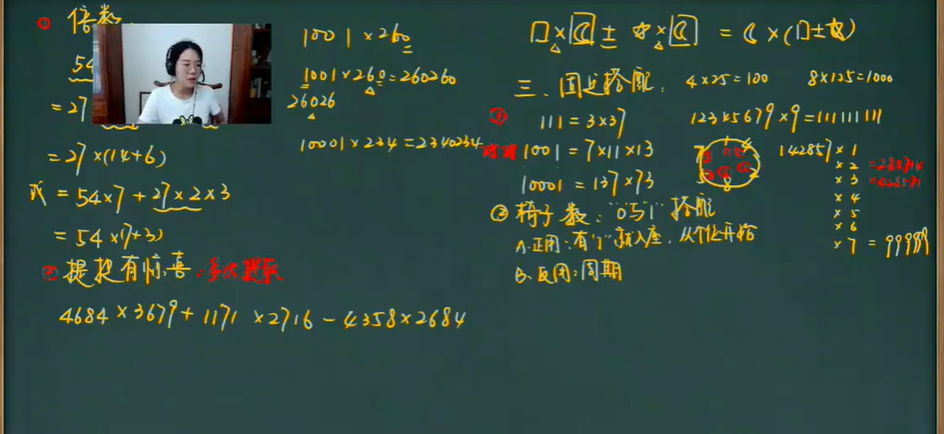 ① 倍数
54
= 27
= 27×(14+6)
或 = 54×7+27×2×3
= 54×(7+3)
② 提把有惊喜:多次提取
4684×3679+1171×2716-4358×2684
1001×260
1001×260=260260
26026
10001×234=2340234
□×☾±☆×☾=☾×(□±☆)
三、固定搭配: 4×25=100 8×125=1000
① 111=3×37 12345679×9=111111111
1001=7×11×13
10001=137×73
7 1 4 2 8 5
142857×1
×2=285714
×3=428571
×4
×5
×6
×7=999999
② 椅子数:“0与1”搭配
A.正用:有“1”就入座,从个位开始
B.反用:周期